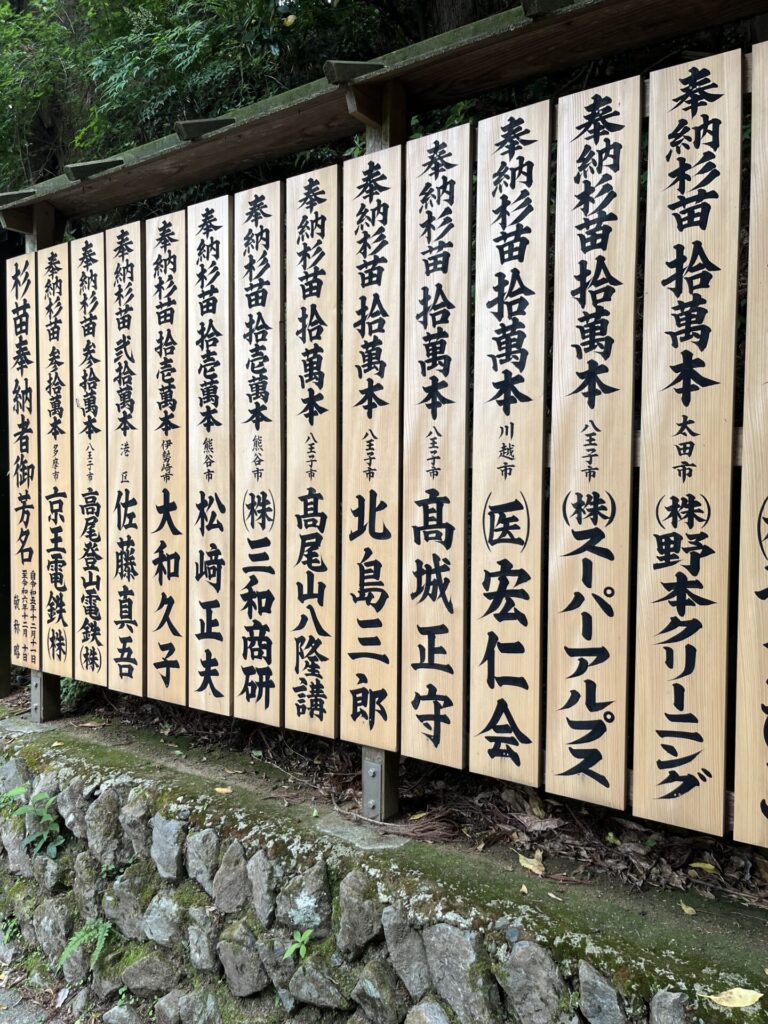 杉苗奉納者御芳名
自令和五年十二月十一日
至令和六年十二月十日
敬称略
奉納杉苗 参拾萬本 多摩市 京王電鉄(株)
奉納杉苗 参拾萬本 八王子市 高尾登山電鉄(株)
奉納杉苗 弐拾萬本 港区 佐藤真吾
奉納杉苗 拾壱萬本 伊勢崎市 大和久子
奉納杉苗 拾壱萬本 熊谷市 松﨑正夫
奉納杉苗 拾壱萬本 熊谷市 (株)三和商研
奉納杉苗 拾萬本 八王子市 髙尾山八隆講
奉納杉苗 拾萬本 八王子市 北島三郎
奉納杉苗 拾萬本 八王子市 髙城正守
奉納杉苗 拾萬本 川越市 (医)宏仁会
奉納杉苗 拾萬本 八王子市 (株)スーパーアルプス
奉納杉苗 拾萬本 太田市 (株)野本クリーニング